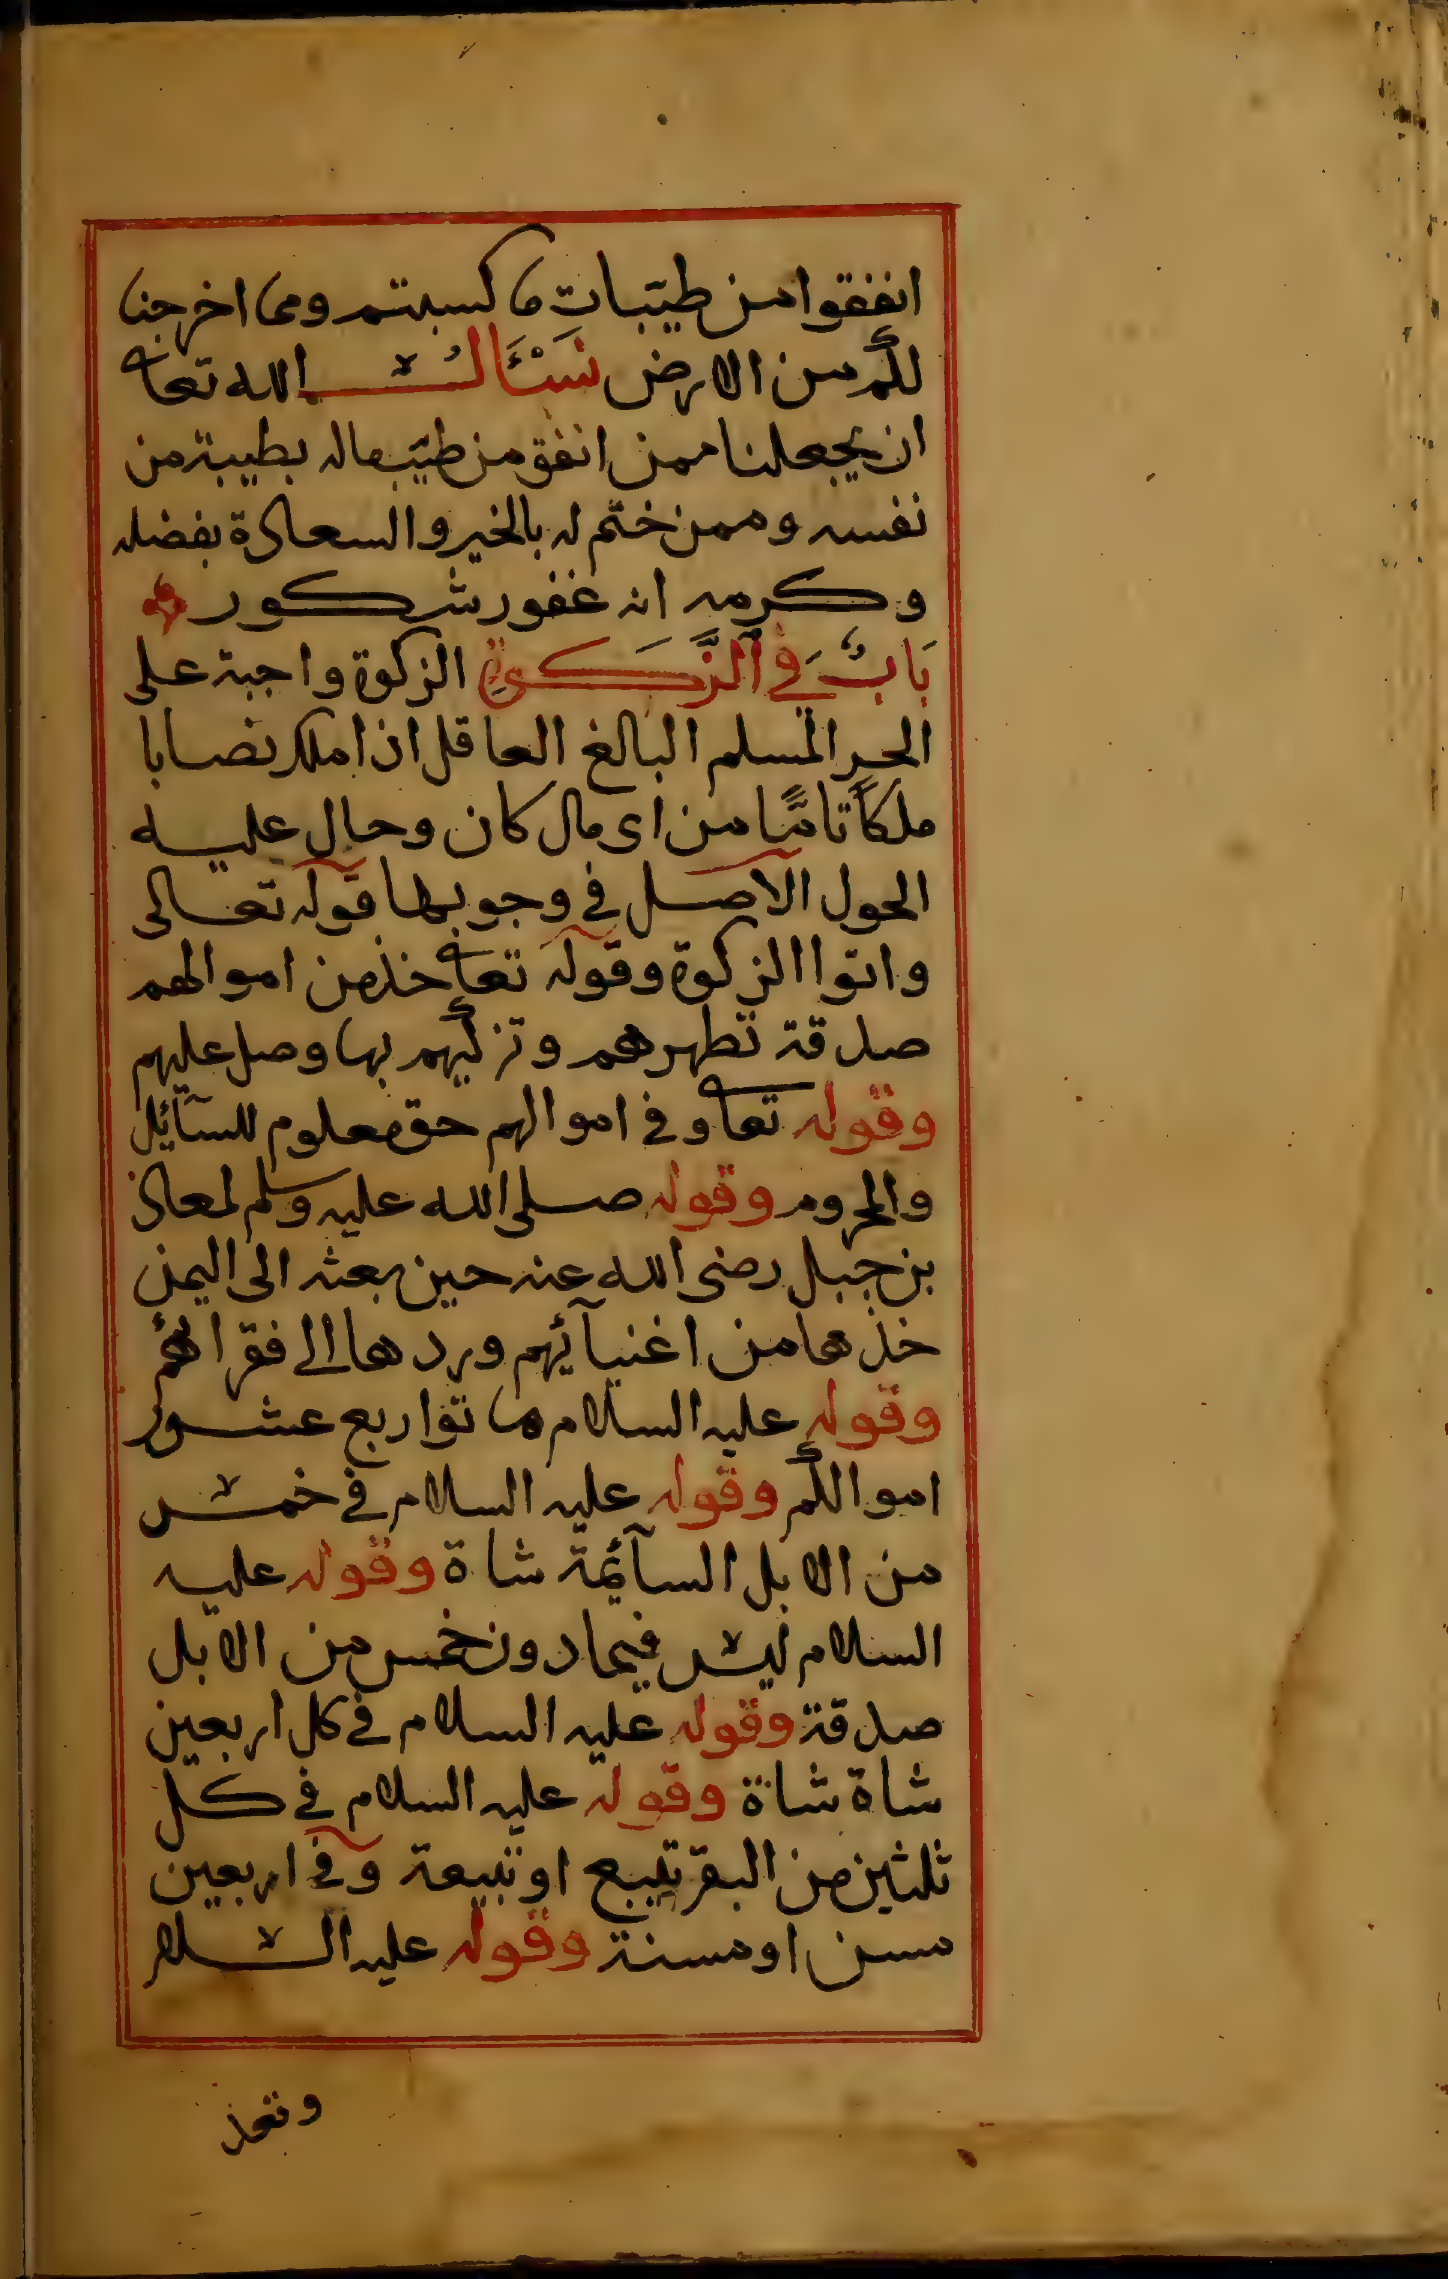 انفقوا من طيّبات ما كسبتم ومما اخرجنا
لكم من الارض نَسْئَالُ الله تعا
ان يجعلنا ممن انفق من طيّب ماله بطيبة من
نفسه وممن ختم له بالخير والسعادة بفضله
وكرمه انه غفور شكور
بَابٌ فِي الزَّكَوةِ الزكوة واجبة على
الحر المسلم البالغ العاقل اذا ملك نصابا
ملكاً تامًّا من اى مال كان وحال عليه
الحول الاصل في وجوبها قوله تعالى
واتوا الزكوة وقوله تعا خذ من اموالهم
صدقة تطهرهم وتزكيهم بها وصل عليهم
وقوله تعا وفي اموالهم حق معلوم للسآئل
والمحروم وقوله صلى الله عليه وسلم لمعاذ
بن جبل رضى الله عنه حين بعثه الى اليمن
خذها من اغنيآئهم وردها الى فقرائهم
وقوله عليه السلام هاتوا ربع عشور
اموالكم وقوله عليه السلام في خمس
من الابل السآئمة شاة وقوله عليه
السلام ليس فيما دون خمس من الابل
صدقة وقوله عليه السلام في كل اربعين
شاة شاة وقوله عليه السلام في كل
ثلثين من البقر تبيع او تبيعة وفي اربعين
مسن او مسنة وقوله عليه السلام